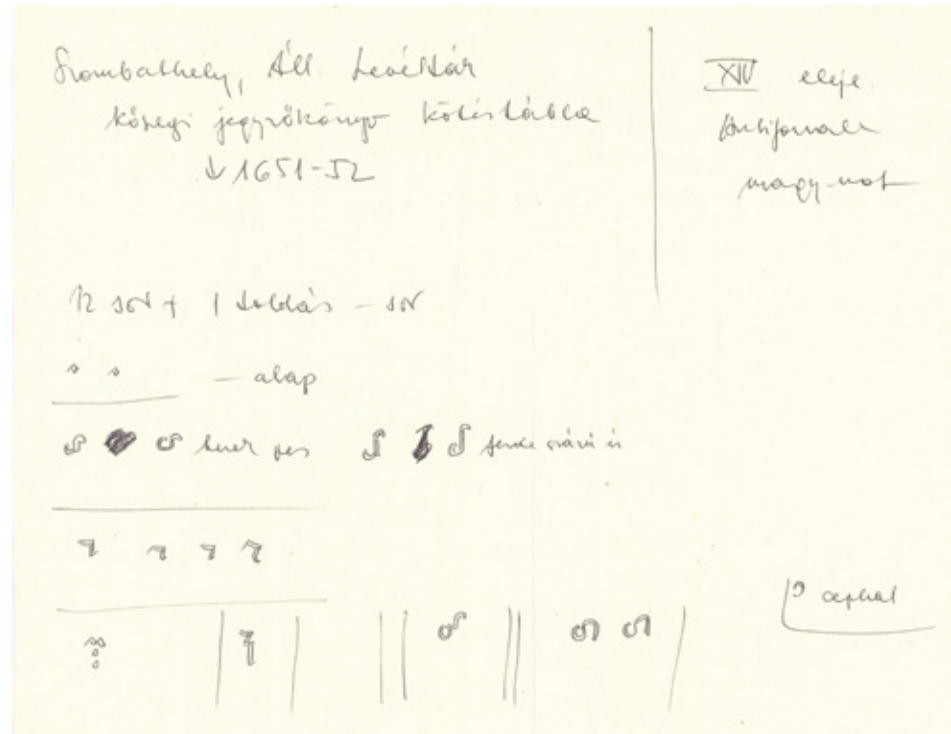 Szombathely, Áll. Levéltár
kőszegi jegyzőkönyv kötéstábla
↓ 1651-52
XIV eleje.
Antifonale
magy. not
12 sor + 1 toldás – sor
– alap
pes
ferde szárú is
cephal